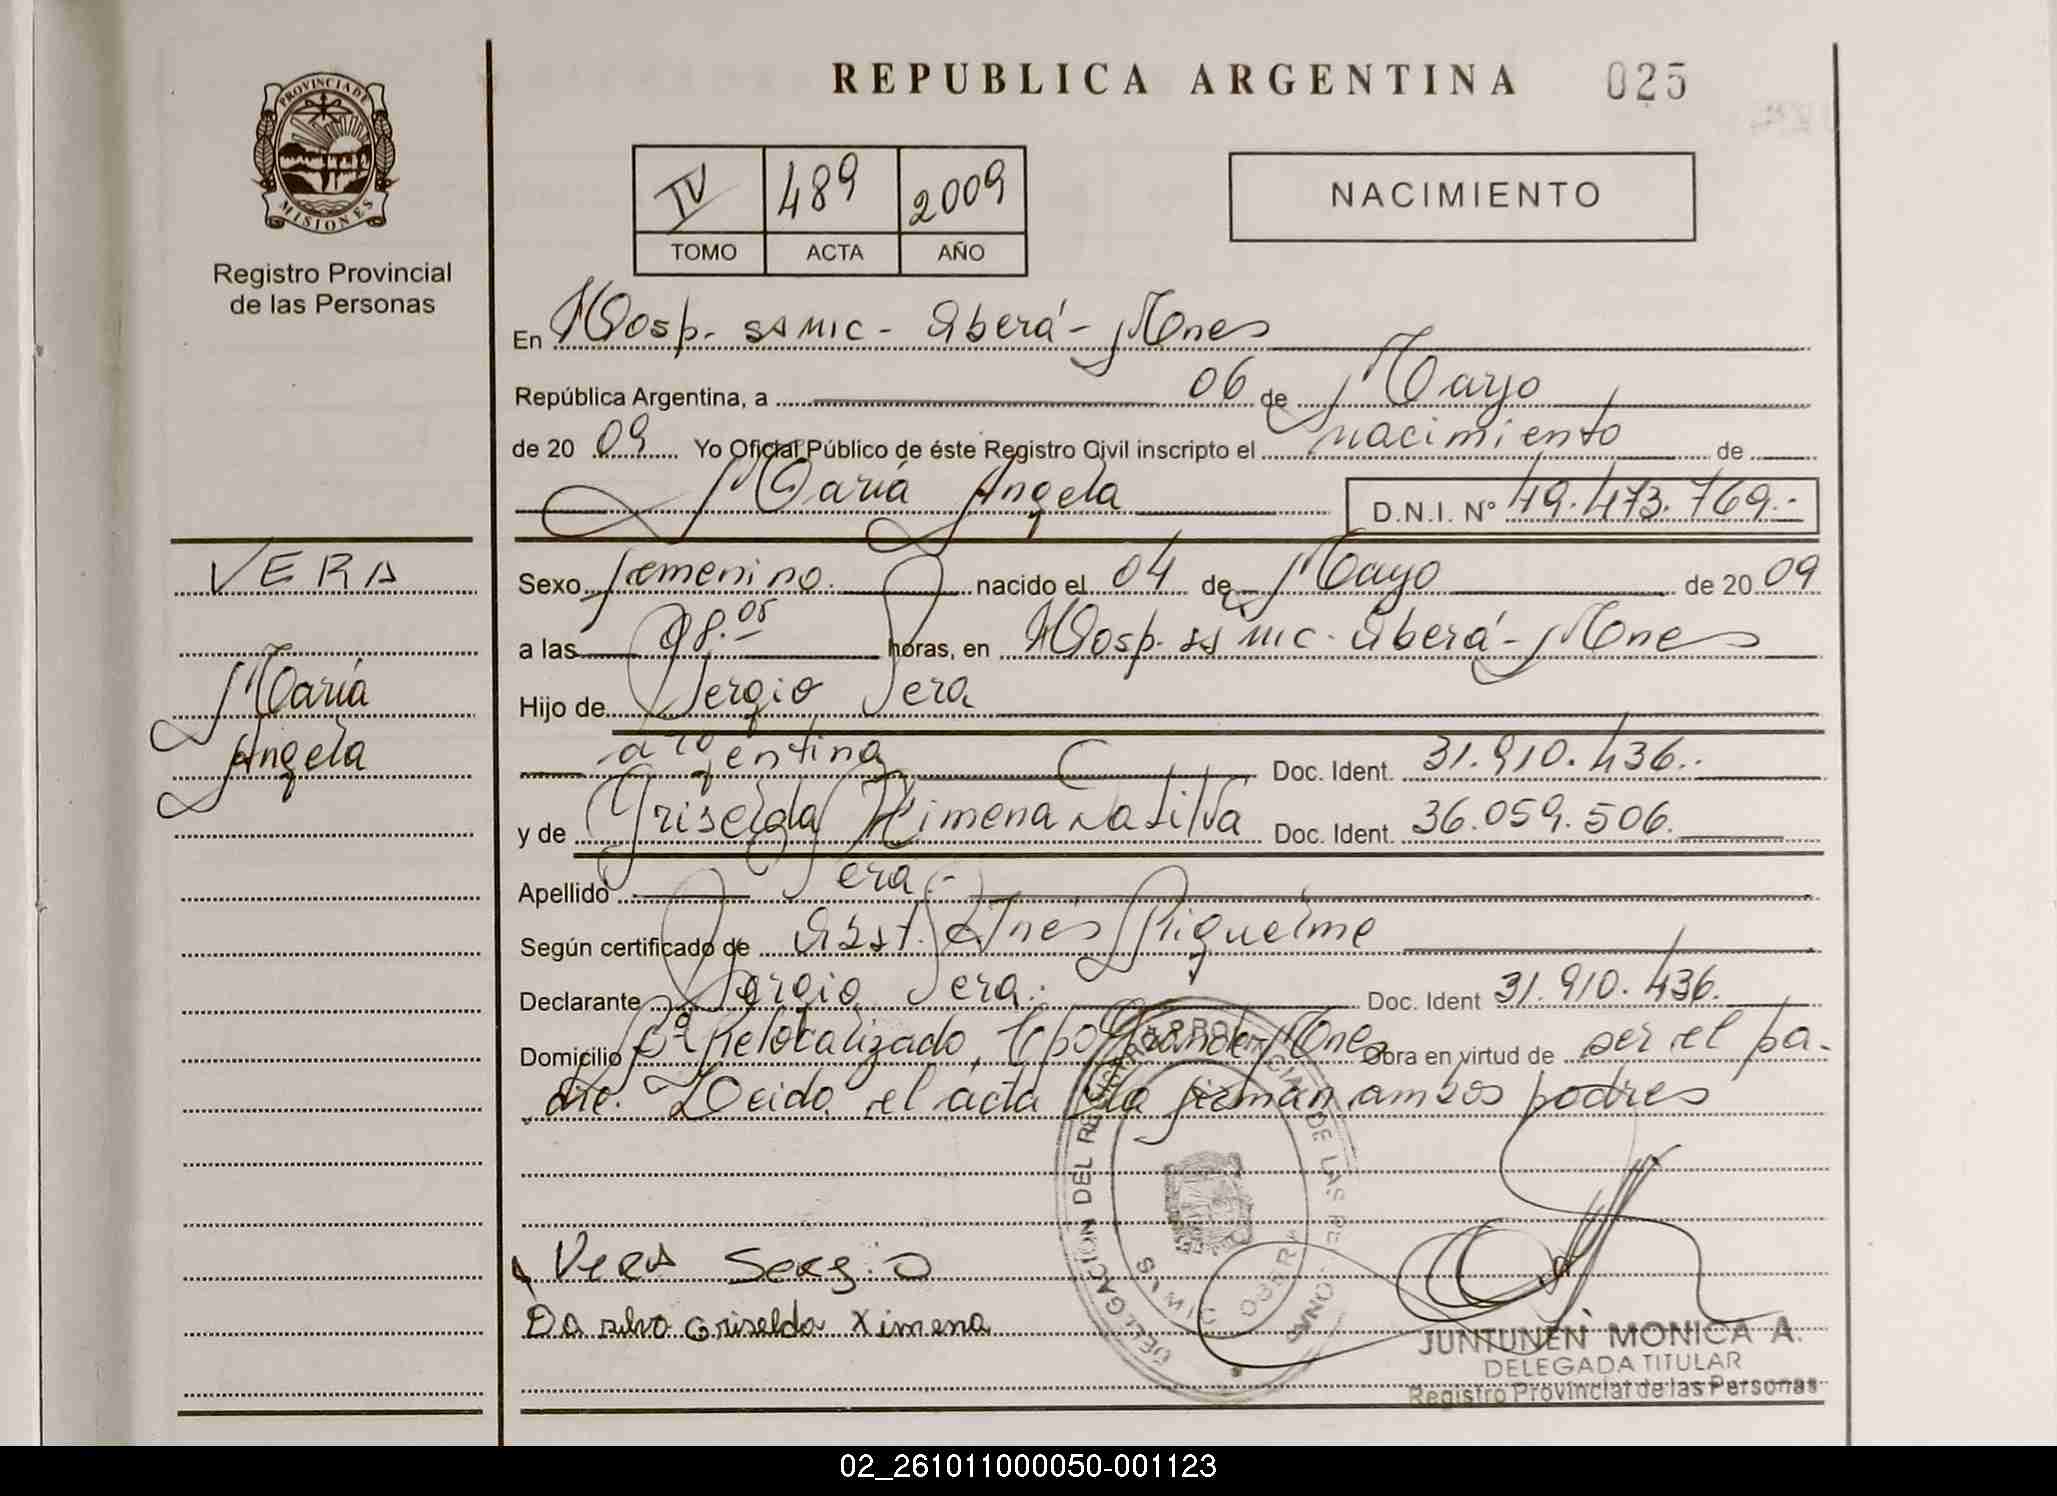 REPUBLICA ARGENTINA 025
PROVINCIA DE
MISIONES
Registro Provincial
de las Personas
IV 489 2009
TOMO ACTA AÑO
NACIMIENTO
En Hosp. SSMIC - Oberá - Mnes
República Argentina, a 06 de Mayo
de 20 09 Yo Oficial Público de éste Registro Civil inscripto el nacimiento de
María Angela D.N.I. N° 49.473.769.-
VERA
María
Angela
Sexo femenino. nacido el 04 de Mayo de 20 09
a las 08.05 horas, en Hosp. SSMIC - Oberá - Mnes
Hijo de Sergio Vera
argentina Doc. Ident. 31.910.436.-
y de Griselda Ximena Da Silva Doc. Ident. 36.059.506.
Apellido Vera.-
Según certificado de Obst. Inés Riquelme
Declarante Sergio Vera. Doc. Ident 31.910.436.
Domicilio Relocalizado, Cpo Grande Mnes Obra en virtud de ser el pa-
dre. Leida el acta la firman ambos padres
DELEGACION DEL REGISTRO PROVINCIAL DE LAS PERSONAS
OBERA
Vera Sergio
Da silva Griselda Ximena
JUNTUNEN MONICA A.
DELEGADA TITULAR
Registro Provincial de las Personas
02_261011000050-001123